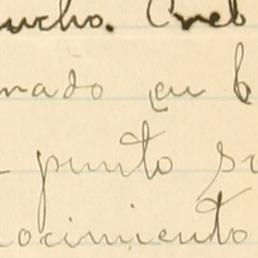 ucho. Creb
nado en b
punto si
ocimiento